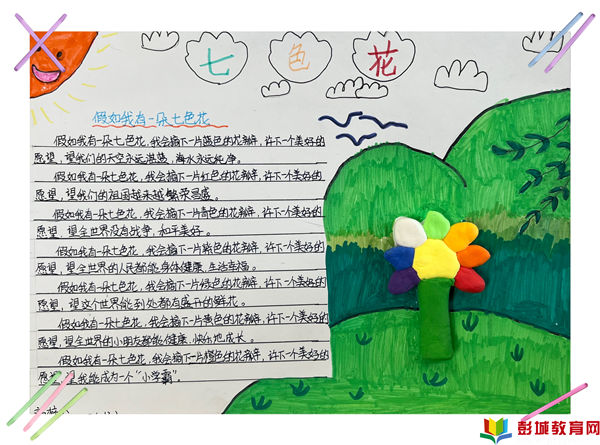 七色花
假如我有一朵七色花
假如我有一朵七色花，我会摘下一片蓝色的花瓣，许下一个美好的
愿望，望我们的天空永远湛蓝，海水永远纯净。
假如我有一朵七色花，我会摘下一片红色的花瓣，许下一个美好的
愿望，望我们的祖国越来越繁荣昌盛。
假如我有一朵七色花，我会摘下一片青色的花瓣，许下一个美好的
愿望，望全世界没有战争，和平美好。
假如我有一朵七色花，我会摘下一片紫色的花瓣，许下一个美好的
愿望，望全世界的人民都能身体健康，生活幸福。
假如我有一朵七色花，我会摘下一片绿色的花瓣，许下一个美好的
愿望，望这个世界能到处都有盛开的鲜花。
假如我有一朵七色花，我会摘下一片黄色的花瓣，许下一个美好的
愿望，望全世界的小朋友都能健康，快乐地成长。
假如我有一朵七色花，我会摘下一片橙色的花瓣，许下一个美好的
愿望，望我能成为一个“小学霸”。
彭城教育网